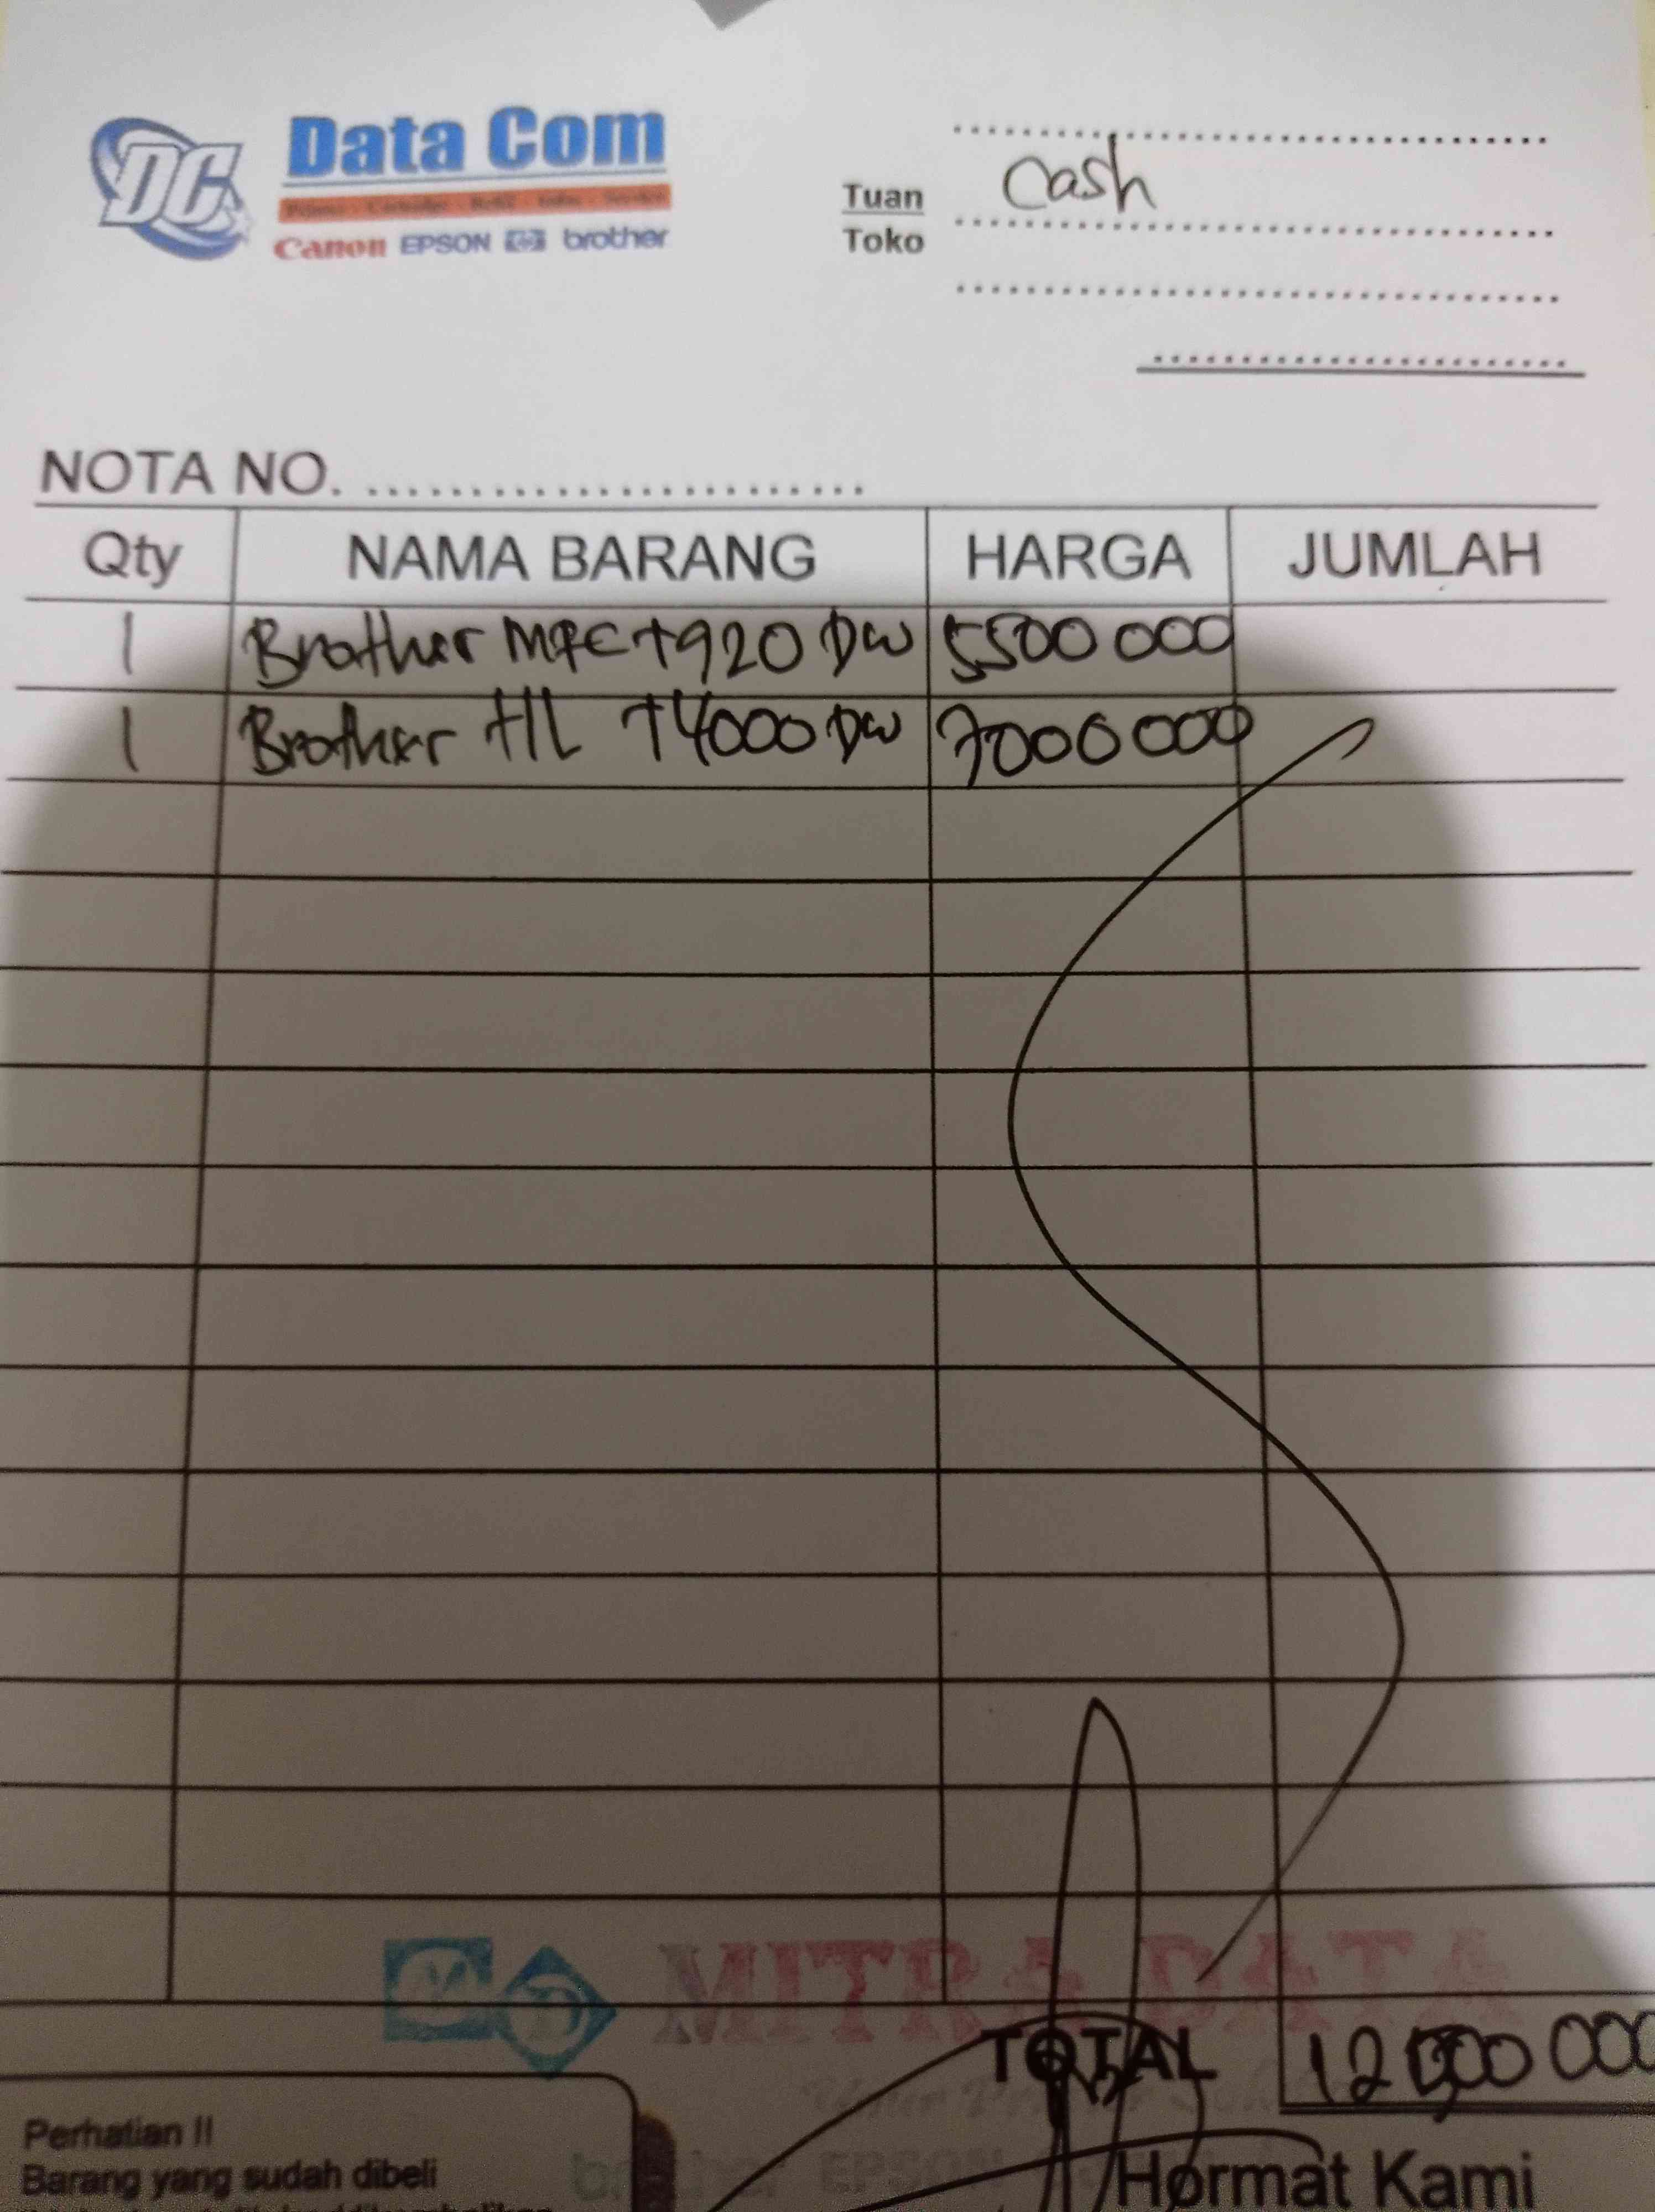 DC Data Com
Printer - Cartridge - Refill - Infus - Service
Canon EPSON hp brother
Tuan Cash
Toko
NOTA NO.
Qty NAMA BARANG HARGA JUMLAH
1 Brother MFC T920 DW 5500 000
1 Brother HL T4000 DW 7000 000
MD MITRA DATA
TOTAL 12500 000
Perhatian !!
Barang yang sudah dibeli
EPSON
Hormat Kami